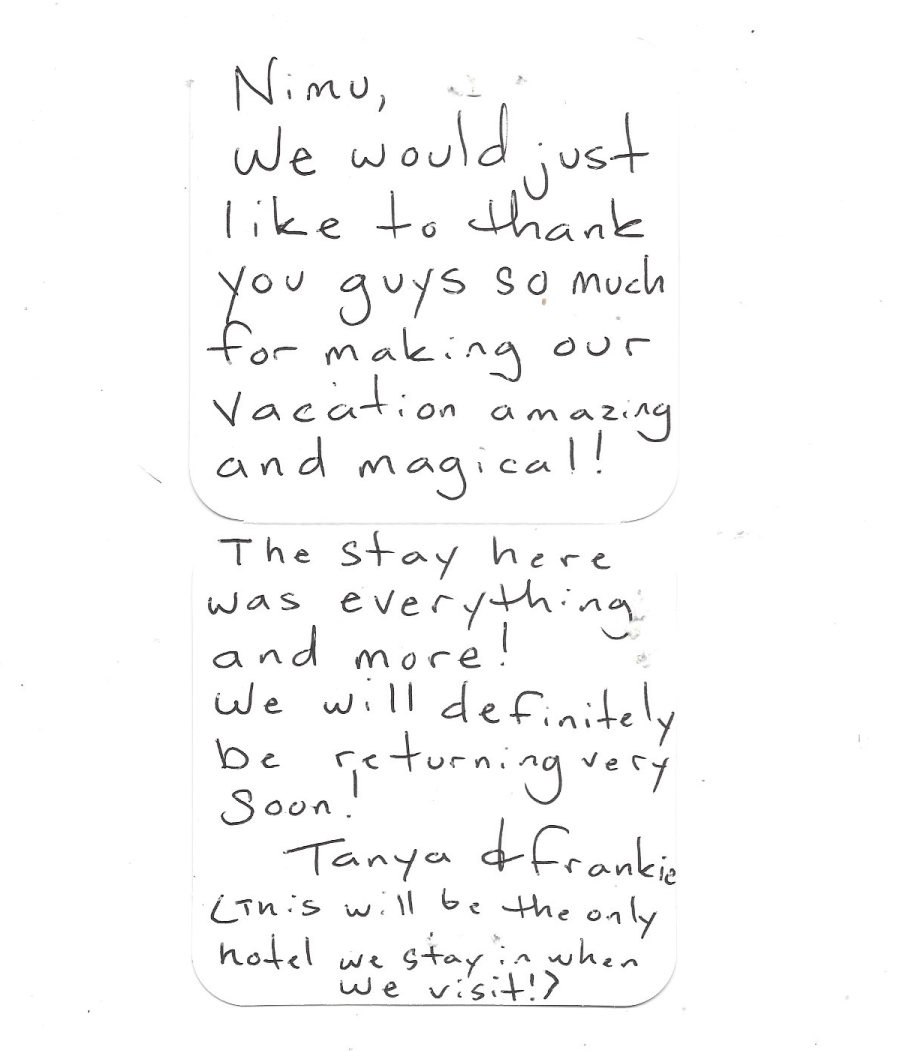 Nimu,
We would just
like to thank
you guys so much
for making our
vacation amazing
and magical!
The stay here
was everything
and more!
We will definitely
be returning very
soon!
Tanya & Frankie
(This will be the only
hotel we stay in when
we visit!)